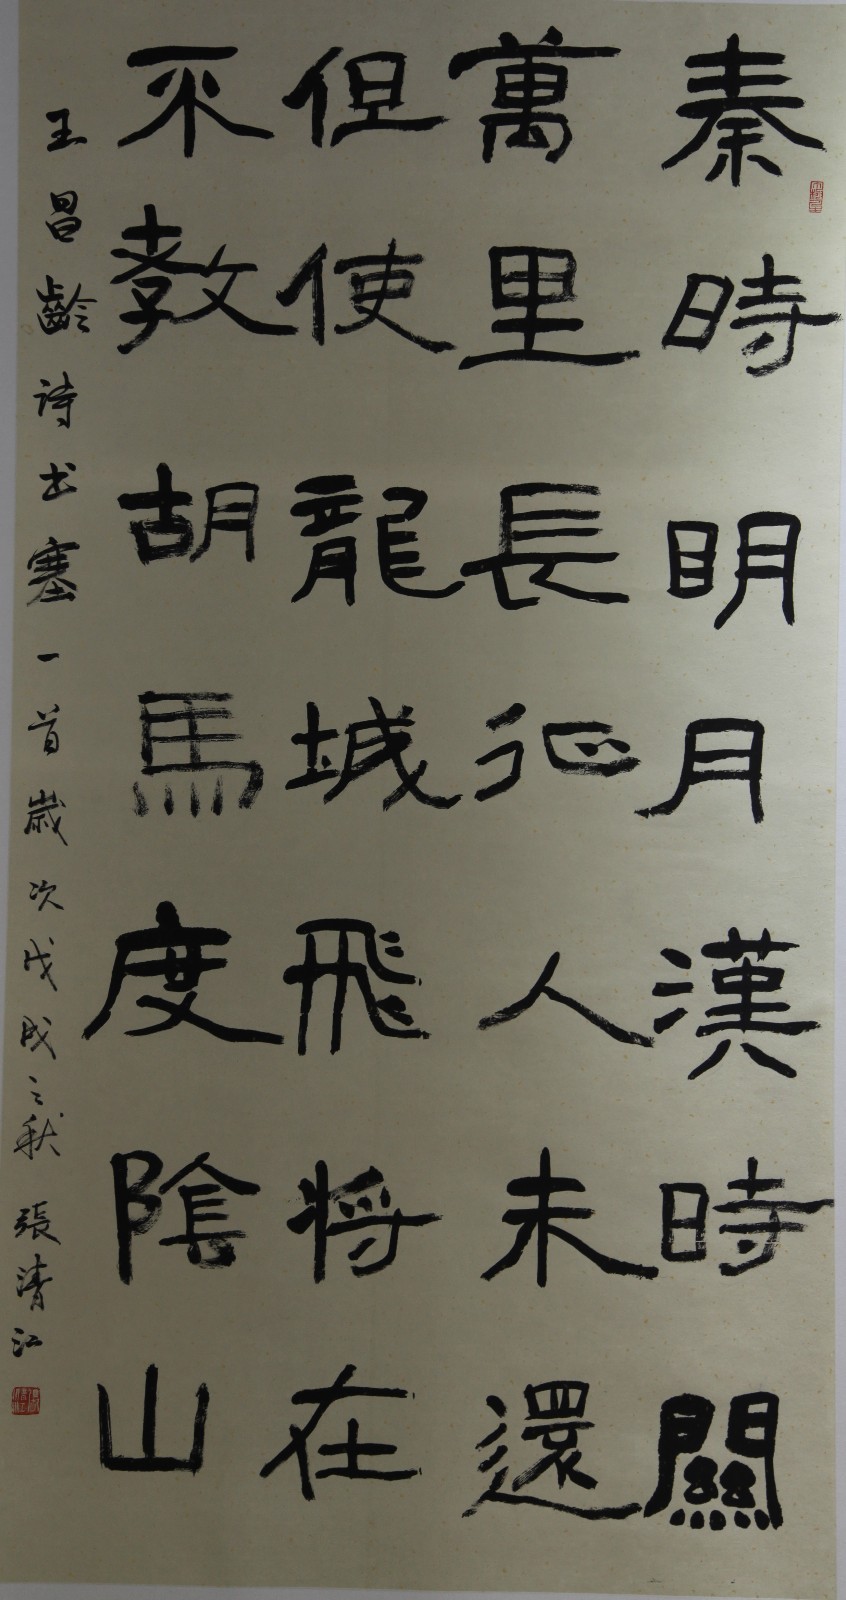 秦時明月漢時關
萬里長征人未還
但使龍城飛将在
不教胡馬度陰山
王昌齡詩出塞一首歲次戊戌之秋張清江